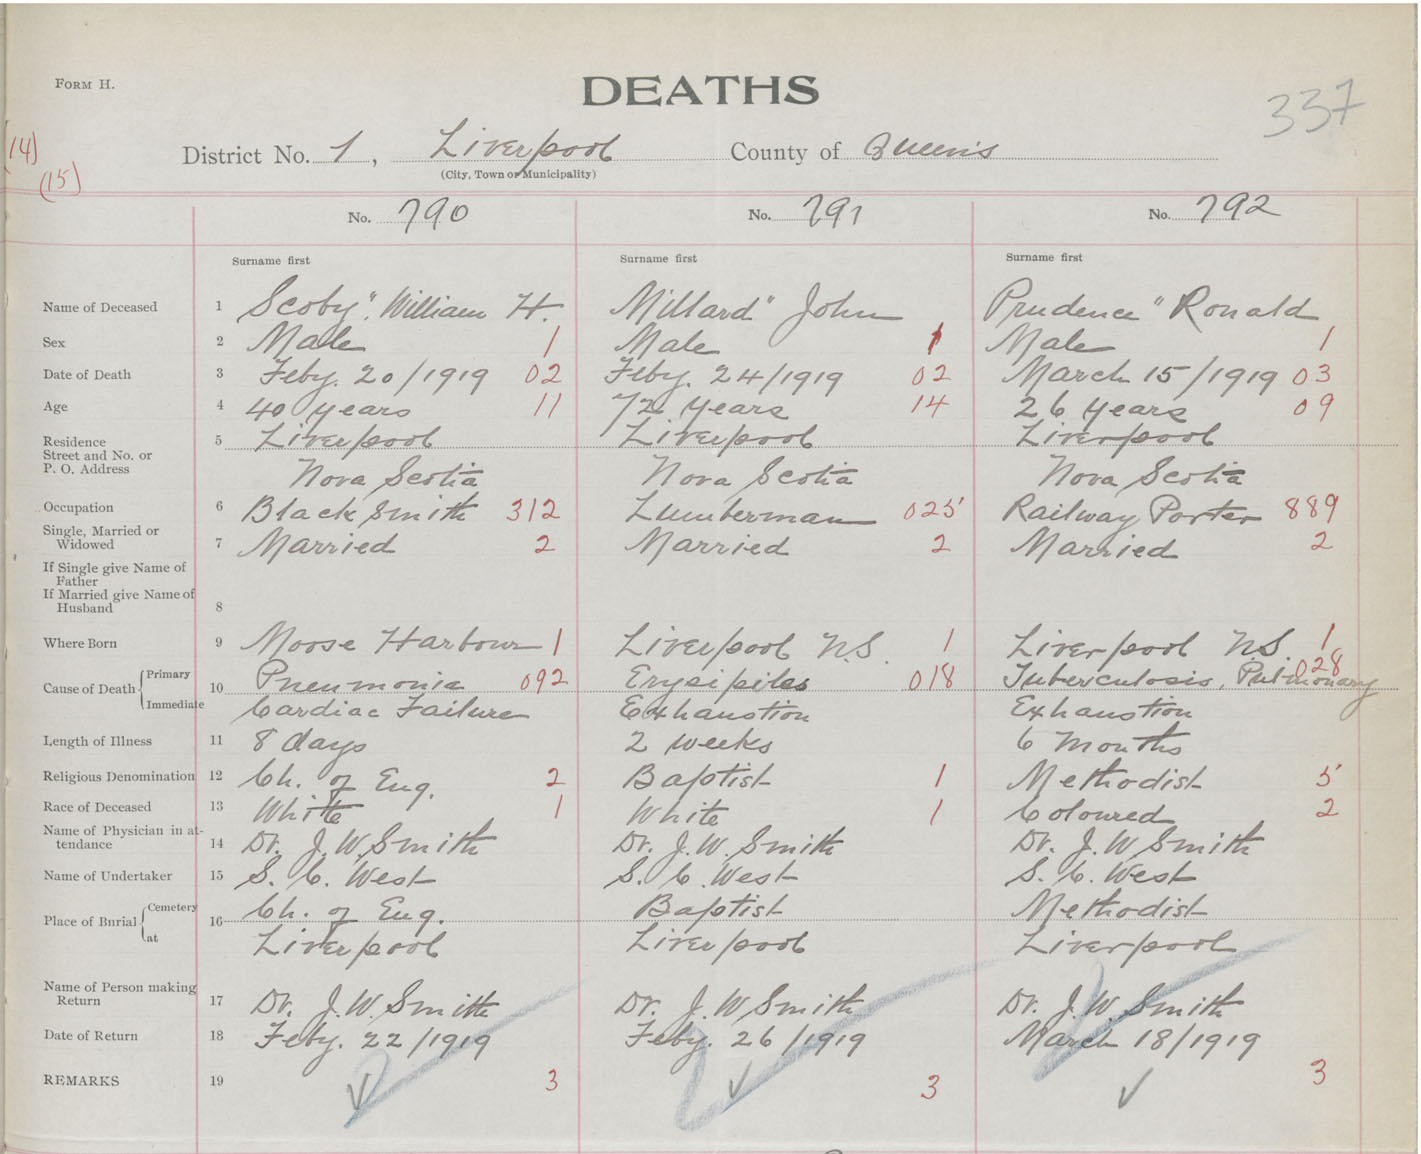 FORM H.
DEATHS
337
14)
(15)
District No. 1, Liverpool County of Queens
(City, Town or Municipality)
No. 790 No. 791 No. 792
Surname first Surname first Surname first
Name of Deceased 1 Scoby", William H. Millard" John Prudence" Ronald
Sex 2 Male 1 Male 1 Male 1
Date of Death 3 Feby. 20/1919 02 Feby. 24/1919 02 March 15/1919 03
Age 4 40 years 11 72 years 14 26 years 09
Residence 5 Liverpool Liverpool Liverpool
Street and No. or
P. O. Address Nova Scotia Nova Scotia Nova Scotia
Occupation 6 Black Smith 312 Lumberman 025 Railway Porter 889
Single, Married or
Widowed 7 Married 2 Married 2 Married 2
If Single give Name of
Father
If Married give Name of
Husband 8
Where Born 9 Moose Harbour 1 Liverpool N.S. 1 Liverpool N.S. 1
Cause of Death Primary 10 Pneumonia 092 Erysipiles 018 Tuberculosis, Pulmonary 028
Immediate Cardiac Failure Exhaustion Exhaustion
Length of Illness 11 8 days 2 weeks 6 Months
Religious Denomination 12 Ch. of Eng. 2 Baptist 1 Methodist 5
Race of Deceased 13 White 1 White 1 Coloured 2
Name of Physician in at-
tendance 14 Dr. J. W. Smith Dr. J. W. Smith Dr. J. W. Smith
Name of Undertaker 15 S. C. West S. C. West S. C. West
Place of Burial Cemetery 16 Ch. of Eng. Baptist Methodist
at Liverpool Liverpool Liverpool
Name of Person making
Return 17 Dr. J. W. Smith Dr. J. W. Smith Dr. J. W. Smith
Date of Return 18 Feby. 22/1919 Feby. 26/1919 March 18/1919
REMARKS 19 3 3 3